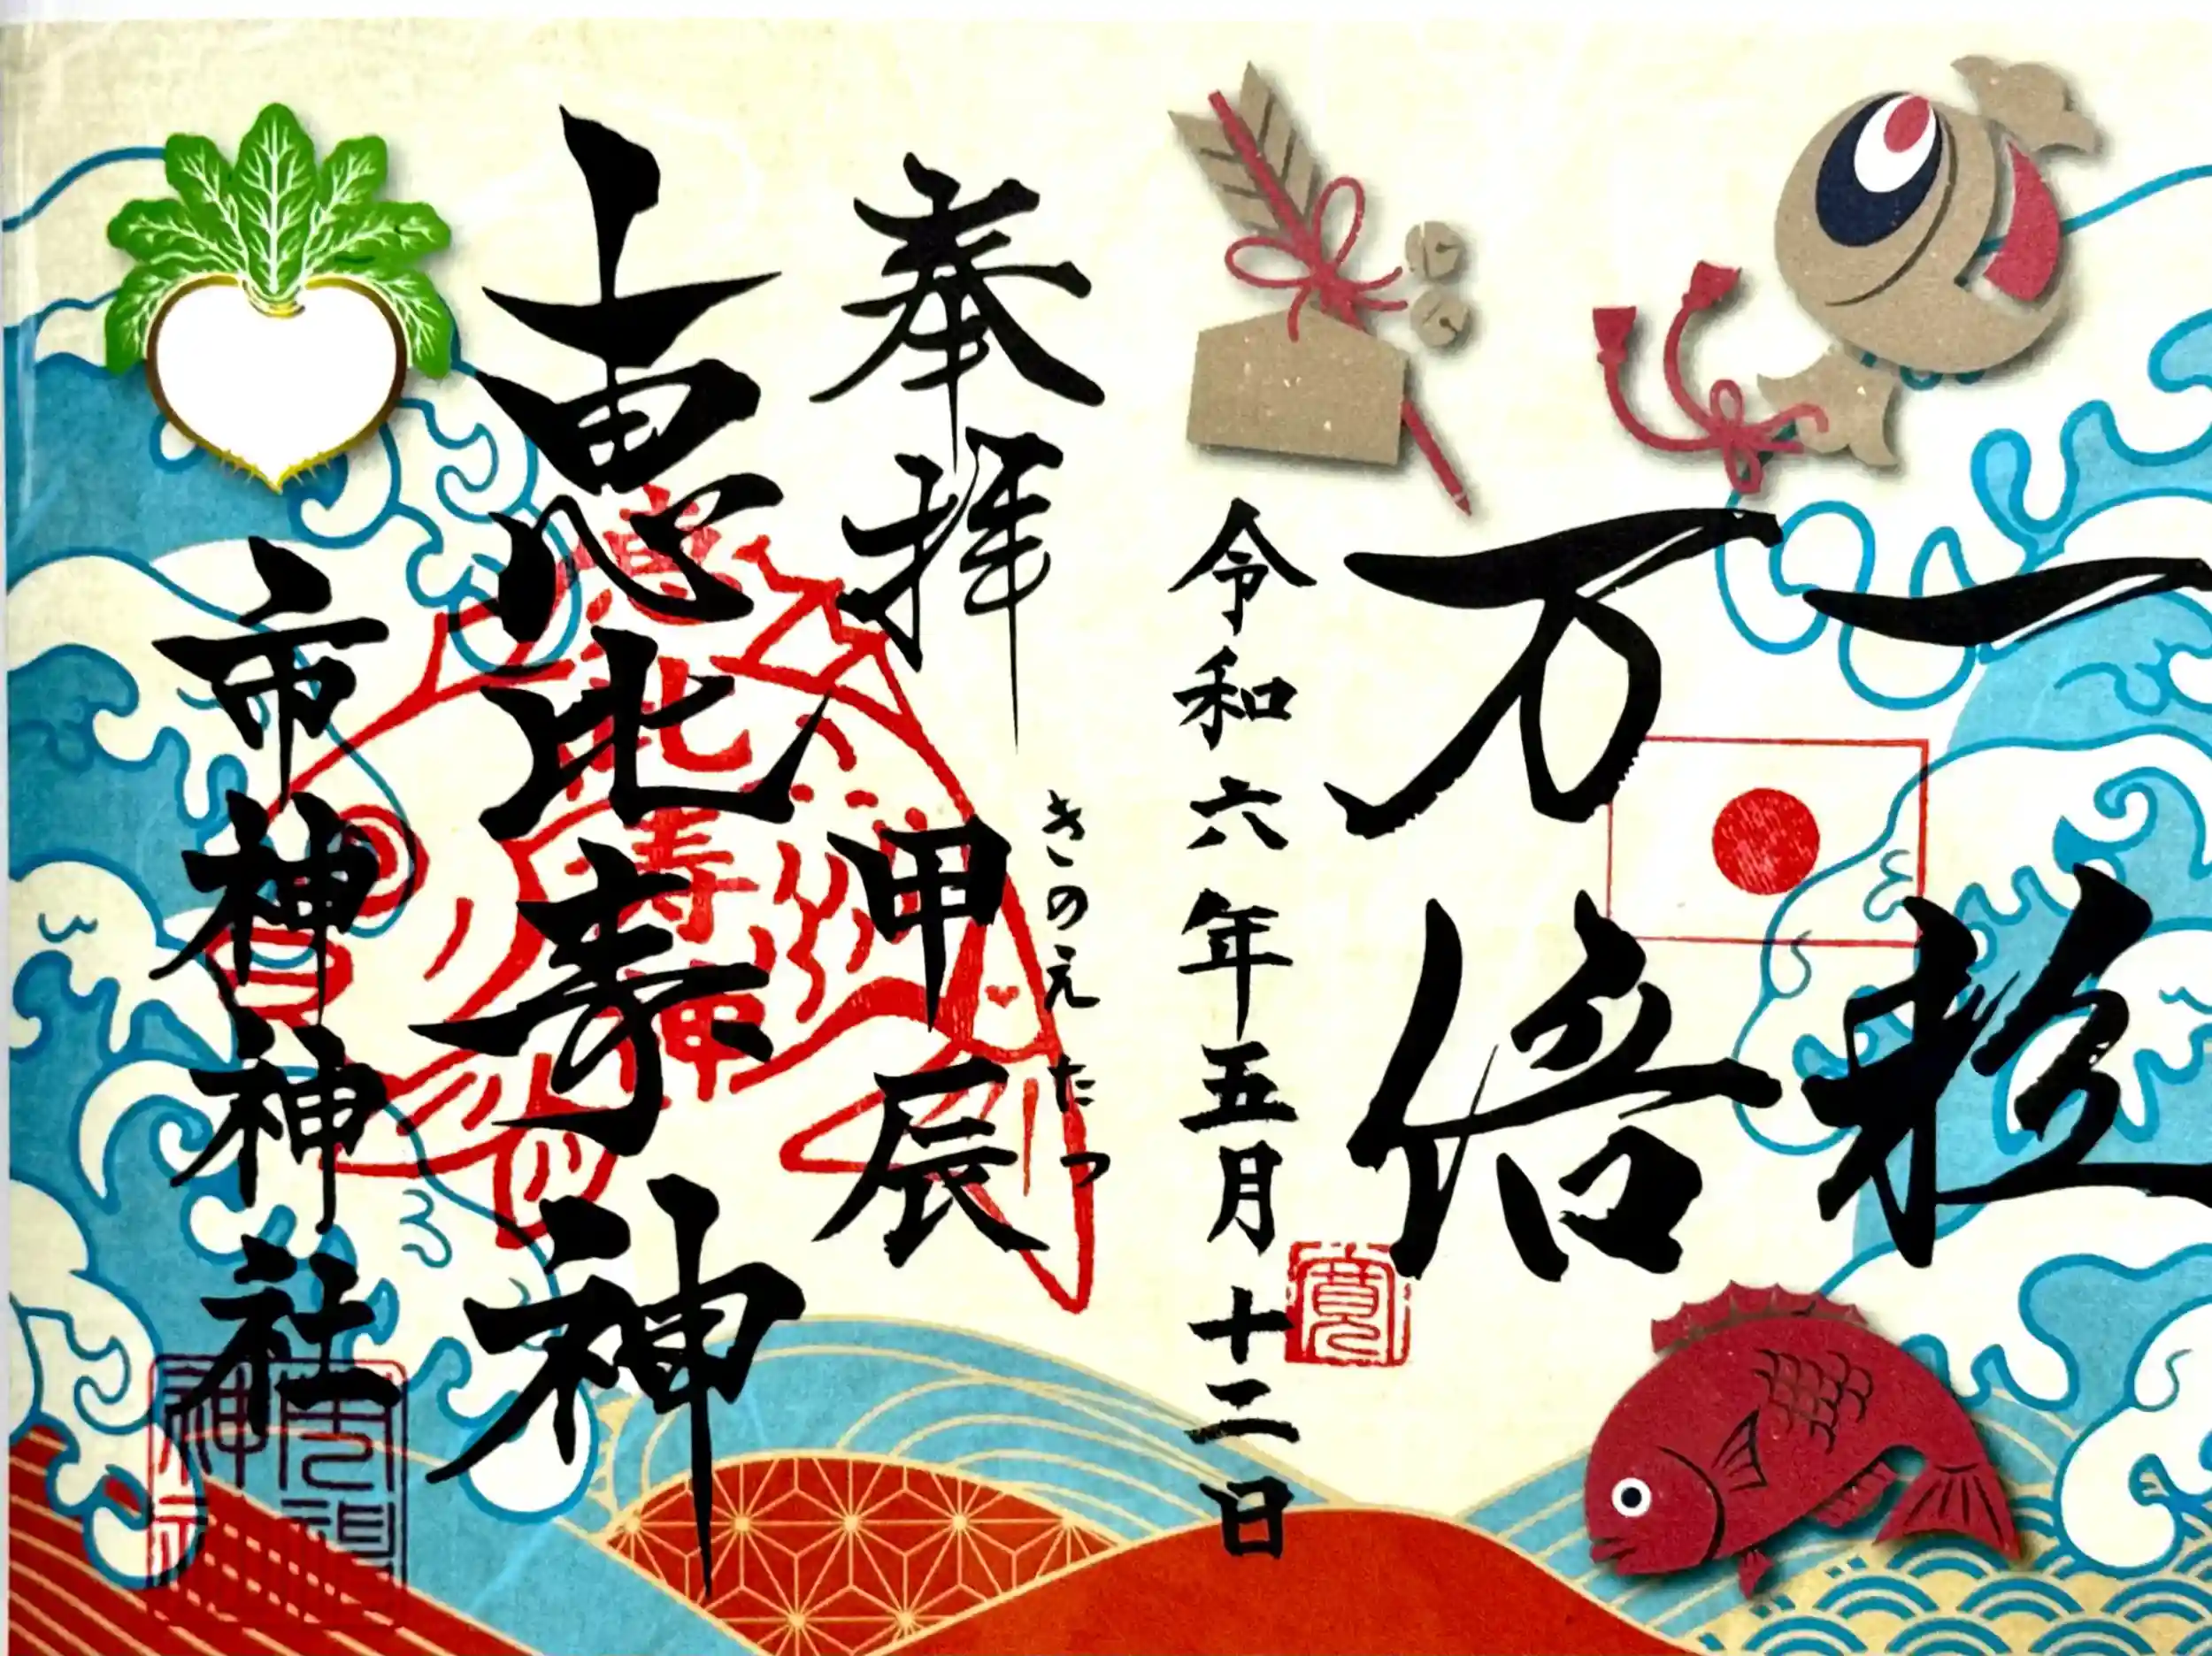 一粒
万倍
令和六年五月十二日
奉拝
きのえたつ
甲辰
恵比寿神
恵比寿神
市神神社